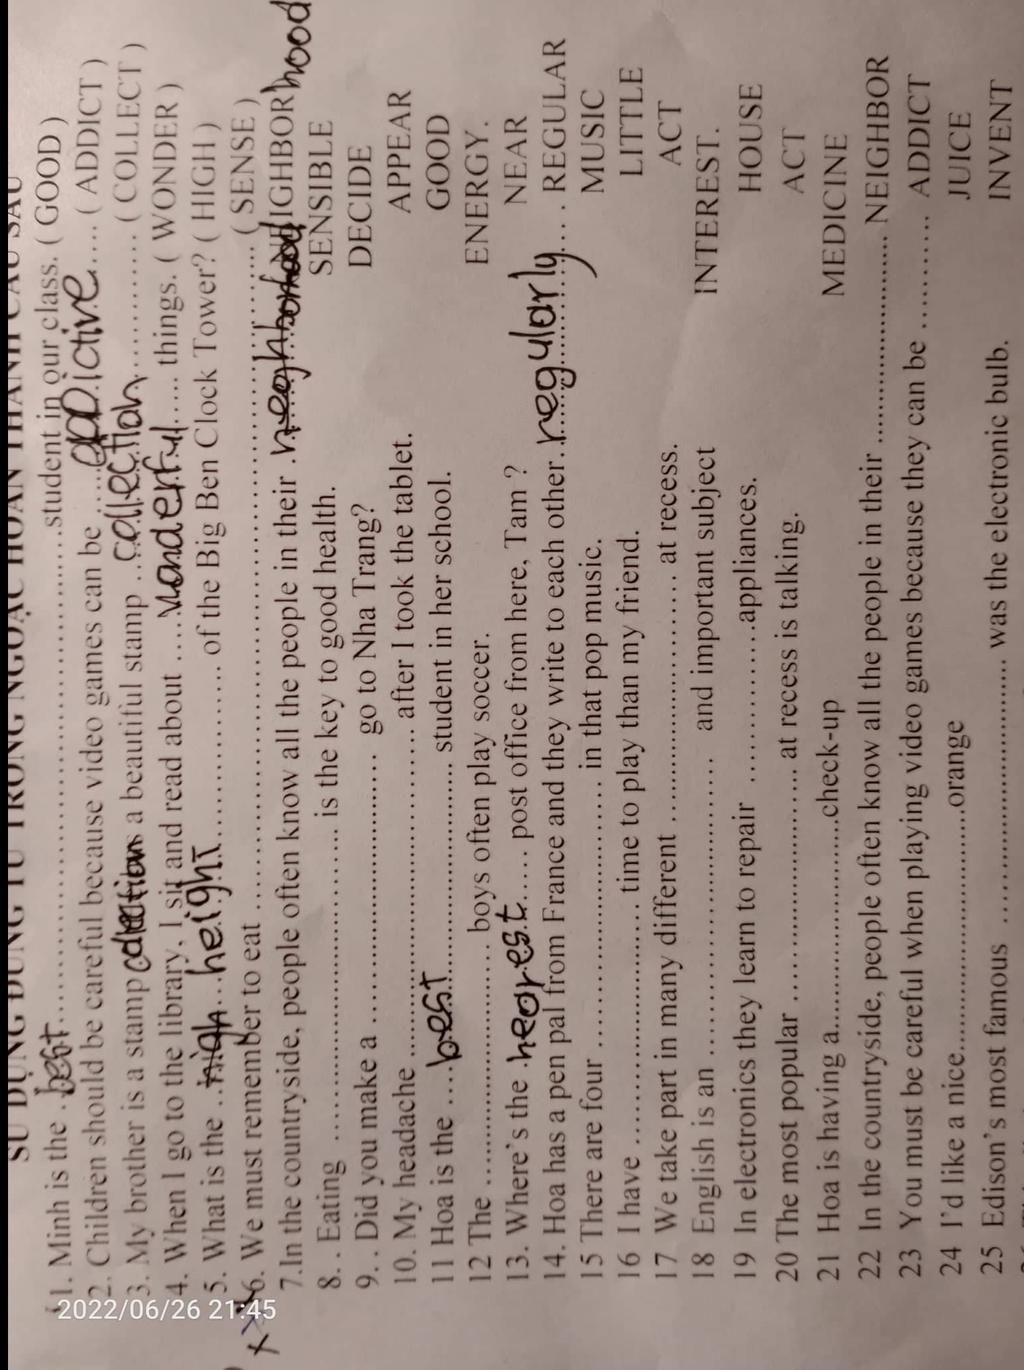 SỬ DỤNG ĐÚNG TỪ TRONG NGOẶC HOÀN THÀNH CÂU SAU
1. Minh is the .best..............student in our class. ( GOOD )
2. Children should be careful because video games can be ....addictive.... ( ADDICT )
3. My brother is a stamp a beautiful stamp ..collection.......... ( COLLECT )
4. When I go to the library, I sit and read about ....wonderful.... things. ( WONDER )
5. What is the ..high...height.......... of the Big Ben Clock Tower? ( HIGH )
6. We must remember to eat .......................... ( SENSE )
7.In the countryside, people often know all the people in their .neghborhood NEIGHBORhood
8. . Eating .......................... is the key to good health. SENSIBLE
9. . Did you make a .......................... go to Nha Trang? DECIDE
10. My headache .......................... after I took the tablet. APPEAR
11 Hoa is the ....best.............. student in her school. GOOD
12 The .......................... boys often play soccer. ENERGY.
13. Where's the .nearest..... post office from here, Tam ? NEAR
14. Hoa has a pen pal from France and they write to each other..regularly.... REGULAR
15 There are four .......................... in that pop music. MUSIC
16 I have .......................... time to play than my friend. LITTLE
17 We take part in many different .......................... at recess. ACT
18 English is an .......................... and important subject INTEREST.
19 In electronics they learn to repair ..............appliances. HOUSE
20 The most popular .......................... at recess is talking. ACT
21 Hoa is having a..........................check-up MEDICINE
22 In the countryside, people often know all the people in their .................... NEIGHBOR
23 You must be careful when playing video games because they can be .......... ADDICT
24 I'd like a nice..........................orange JUICE
25 Edison's most famous .......................... was the electronic bulb. INVENT
2022/06/26 21:45